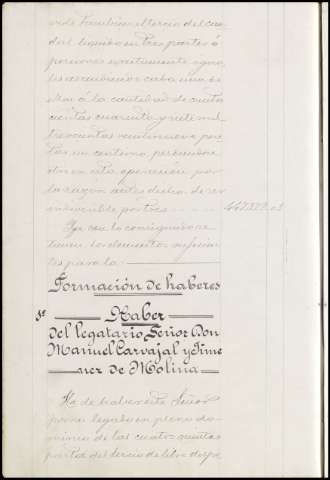 vide tambien el tercio del cau
dal liquido en tres partes ó
porciones exactamente igua
les ascendiendo cada una de
ellas á la cantidad de cuatro
cientas cuarenta y siete mil
trescientas veintinueve pese
tas un centimo, perdiendose
dos en esta operación por
la razon antes dicha de ser
indivisible por tres 447.329.01
Ya con lo consignado te
nemos los elementos suficien
tes para la
Formación de haberes
Haber
del legatario Señor Don
Manuel Carvajal y Jime
nez de Molina
Ha de haber este Señor
por su legado en pleno do
minio de las cuatro quintas
partes del tercio de libre dispo